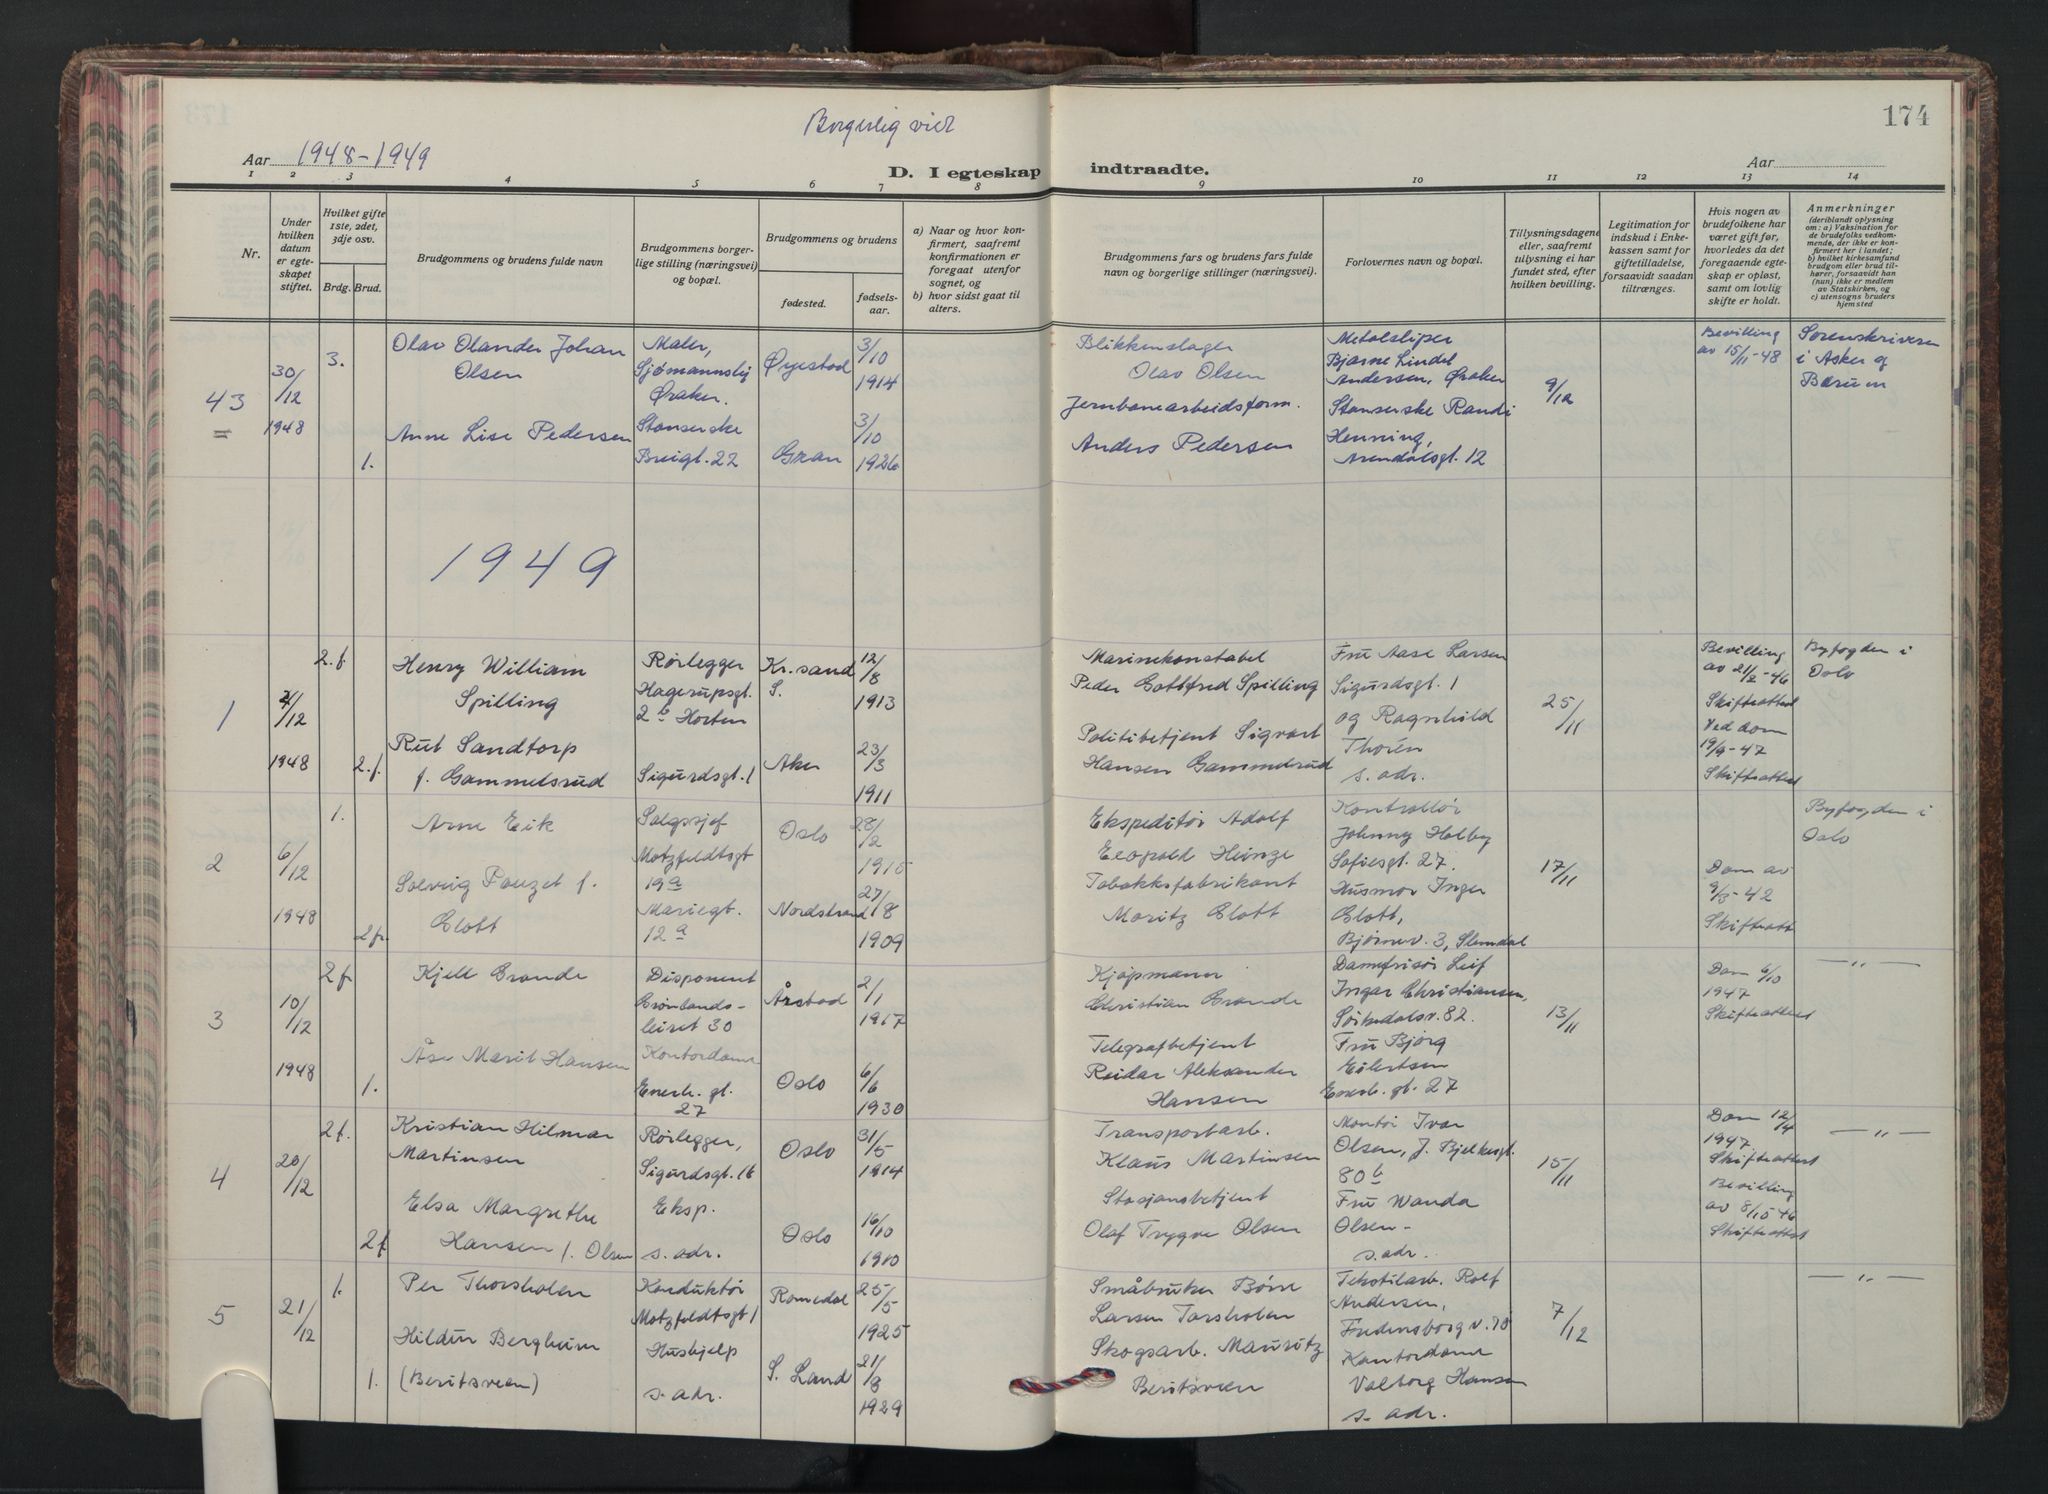 174
Borgerlig viet
Aar 1948-1949
D. I egteskap
indtraadte.
Aar
1 2 3 4 5 6 7 8 9 10 11 12 13 14
Nr.
Under hvilken datum er egte- skapet stiftet.
Hvilket gifte 1ste, 2det, 3dje osv.
Brdg. Brud.
Brudgommens og brudens fulde navn
Brudgommens borger- lige stilling (næringsvei) og bopæl.
Brudgommens og brudens
fødested.
fødsels- aar.
a) Naar og hvor kon- firmert, saafremt konfirmationen er foregaat utenfor sognet, og
b) hvor sidst gaat til alters.
Brudgommens fars og brudens fars fulde navn og borgerlige stillinger (næringsvei).
Forlovernes navn og bopæl.
Tillysningsdagene eller, saafremt tillysning ei har fundet sted, efter hvilken bevilling.
Legitimation for indskud i Enke- kassen samt for giftetilladelse, forsaavidt saadan tiltrænges.
Hvis nogen av brudefolkene har været gift før, hvorledes da det foregaaende egte- skap er opløst, samt om lovlig skifte er holdt.
Anmerkninger
(deriblandt oplysning om: a) Vaksination for de brudefolks vedkom- mende, der ikke er kon- firmert her i landet; b) hvilket kirkesamfund brudgom eller brud til- hører, forsaavidt han (hun) ikke er medlem av Statskirken, og c) utensogns bruders hjemsted
43
30/12
1948
3.
Olav Olander Johan
Olsen
Maler,
Øraker.
Øyestad
3/10
1914
Blikkenslager
Olav Olsen
Metalsliper
Bjarne Lindel
Andersen, Øraker
9/12
Bevilling
av 15/11-48
Sorenskriveren
i Asker og
Bærum
1.
Anne Lise Pedersen
Stanserske
Breigt. 22
Gran
3/10
1926
Jernbanearbeidsform.
Anders Pedersen
Stanserske Randi
Henning,
Arendalsgt. 12
1949
1
2/12
1948
2.f.
Henry William
Spilling
Rørlegger
Hagerupsgt.
2b Horten
Kr.sand
S.
12/8
1913
Marinekonstabel
Peder Gottfred Spilling
Fru Aase Larsen
Sigurdsgt. 1
og Ragnhild
Thorén
s. adr.
25/11
Bevilling
av 21/2-46
Skifteattest
Ved dom
19/9-47
Skifteattest
Byfogden i
Oslo
2.f.
Rut Sandtorp
f. Gammelsrud
Sigurdsgt. 1
Aker
23/3
1911
Politibetjent Sigvart
Hansen Gammelsrud
2
6/12
1948
1.
Arne Eik
Salgssjef
Motzfeldtsgt
19a
Oslo
28/2
1915
Ekspeditør Adolf
Leopold Heinze
Kontrollør
Johnny Holby
Sofiesgt. 27.
17/11
Dom av
9/3-42
Skifteatt
Byfogden i
Oslo
2 f.
Solveig Pauzet f.
Glott
Mariegt.
12a
Nordstrand
27/8
1909
Tobakksfabrikant
Moritz Glott
Husmor Inger
Glott,
Bjørnev. 3, Slemdal
3
10/12
1948
2f
Kjell Grande
Disponent
Grønlands-
leiret 30
Årstad
2/1
1917
Kjøpmann
Christian Grande
Damefrisør Leif
Ingar Christiansen,
Sørkedalsv. 82.
13/11
Dom 6/10
1947
Skifteattest
— " —
1.
Åse Marit Hansen
Kontordame
Enerh. gt.
27
Oslo
6/6
1930
Telegrafbetjent
Reidar Aleksander
Hansen
Fru Bjørg
Eilertsen
Enerh. gt. 27
4
20/12
2f.
Kristian Hilmar
Martinsen
Rørlegger,
Sigurdsgt. 16
Oslo
31/5
1914
Transportarb.
Klaus Martinsen
Montør Ivar
Olsen, J. Bjelkesgt.
80b
15/11
Dom 12/4
1947.
Skifteattest
Bevilling
av 8/10 46
Skifteattest
— " —
2f
Elsa Margrethe
Hansen f. Olsen
Eksp.
s. adr.
Oslo
16/10
1910
Stasjonsbetjent
Olaf Trygve Olsen
Fru Wanda
Olsen-
s. adr.
5
21/12
1.
Per Thorsholen
Konduktør
Motzfeldtsgt 1
Romedal
25/5
1925
Småbruker Børre
Larsen Torsholen
Tekstilarb. Rolf
Andersen,
Fredensborgv. 18
7/12
— " —
1.
Hildur Bergheim
(Beritsveen)
Hushjelp
s. adr.
S. Land
21/8
1929
Skogsarb. Mauritz
Beritsveen
Kontordame
Valborg Hansen
s. adr.